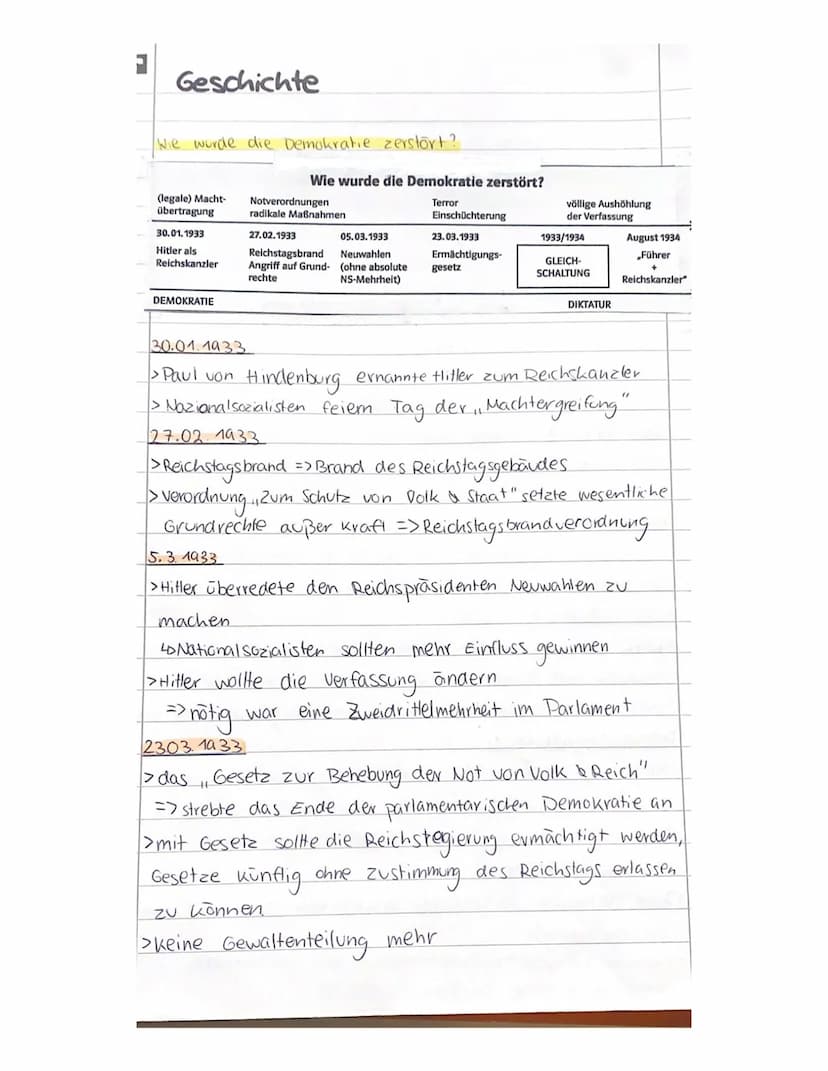 Geschichte
Wie wurde die Demokratie zerstört?
Wie wurde die Demokratie zerstört?
(legale) Macht-
übertragung
Notverordnungen
radikale Maßnahmen
Terror
Einschüchterung
völlige Aushöhlung
der Verfassung
30.01.1933
Hitler als
Reichskanzler
27.02.1933
Reichstagsbrand
Angriff auf Grund-
rechte
05.03.1933
Neuwahlen
(ohne absolute
NS-Mehrheit)
23.03.1933
Ermächtigungs-
gesetz
1933/1934
GLEICH-
SCHALTUNG
August 1934
„Führer
+
Reichskanzler"
DEMOKRATIE
DIKTATUR
30.01.1933
> Paul von Hindenburg ernannte Hitler zum Reichskanzler
> Nazionalsozialisten feiern Tag der „Machtergreifung"
27.02.1933
> Reichstagsbrand => Brand des Reichstagsgebäudes
> Verordnung „Zum Schutz von Volk & Staat" setzte wesentliche
Grundrechte außer Kraft => Reichstagsbrandverordnung
5.3.1933
> Hitler überredete den Reichspräsidenten Neuwahlen zu
machen
↳ Nationalsozialisten sollten mehr Einfluss gewinnen
> Hitler wollte die Verfassung ändern
=> nötig war eine Zweidrittelmehrheit im Parlament
2303.1933
> das „Gesetz zur Behebung der Not von Volk & Reich"
=> strebte das Ende der parlamentarischen Demokratie an
> mit Gesetz sollte die Reichstegierung ermächtigt werden,
Gesetze künftig ohne Zustimmung des Reichstags erlassen
zu können
> keine Gewaltenteilung mehr